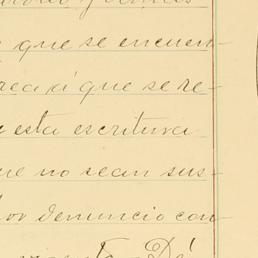 que se encuen-
rea á que se re-
esta escritura
que no sean sus-
por denuncio con-
Dé